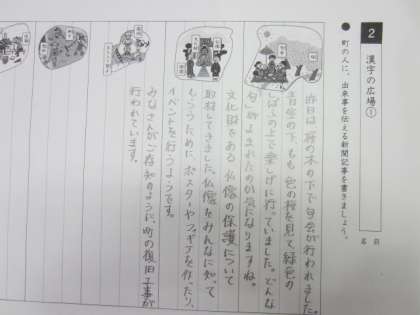 2
漢字の広場①
●町の人に、出来事を伝える新聞記事を書きましょう。
名前
昨日は、桜の木の下で句会が行われました。
青空の下、もも色の桜を見て、緑色の
しばふの上で楽しげに行っていました。どんな
句がよまれたのか気になりますね。
文化財をある仏像の保護について
取材してきました。仏像をみんなに知って
もらうために、ポスターやフィギアを作ったり、
イベントを行うようです。
みなさんがご存知のように、町の復旧工事が
行われています。